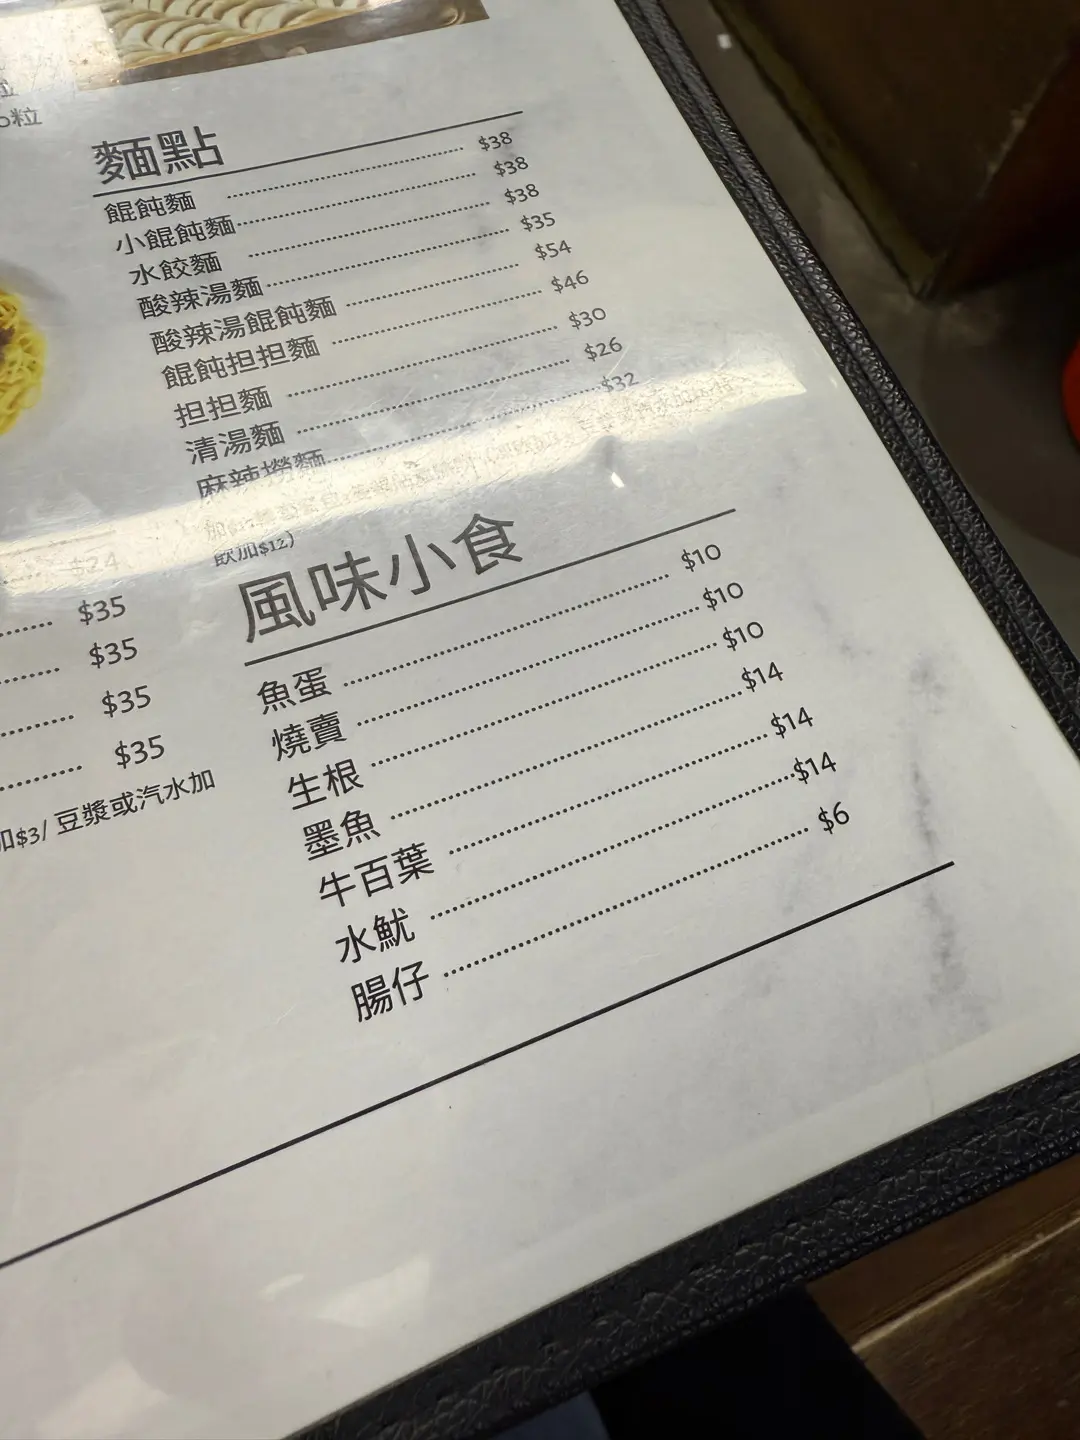 粒
0粒
麵點
餛飩麵 $38
小餛飩麵 $38
水餃麵 $38
酸辣湯麵 $35
酸辣湯餛飩麵 $54
餛飩担担麵 $46
担担麵 $30
清湯麵 $26
麻辣撈麵 $32
飲加$12)
風味小食
魚蛋 $10
燒賣 $10
生根 $10
墨魚 $14
牛百葉 $14
水魷 $14
腸仔 $6
$24
$35
$35
$35
$35
加$3/ 豆漿或汽水加